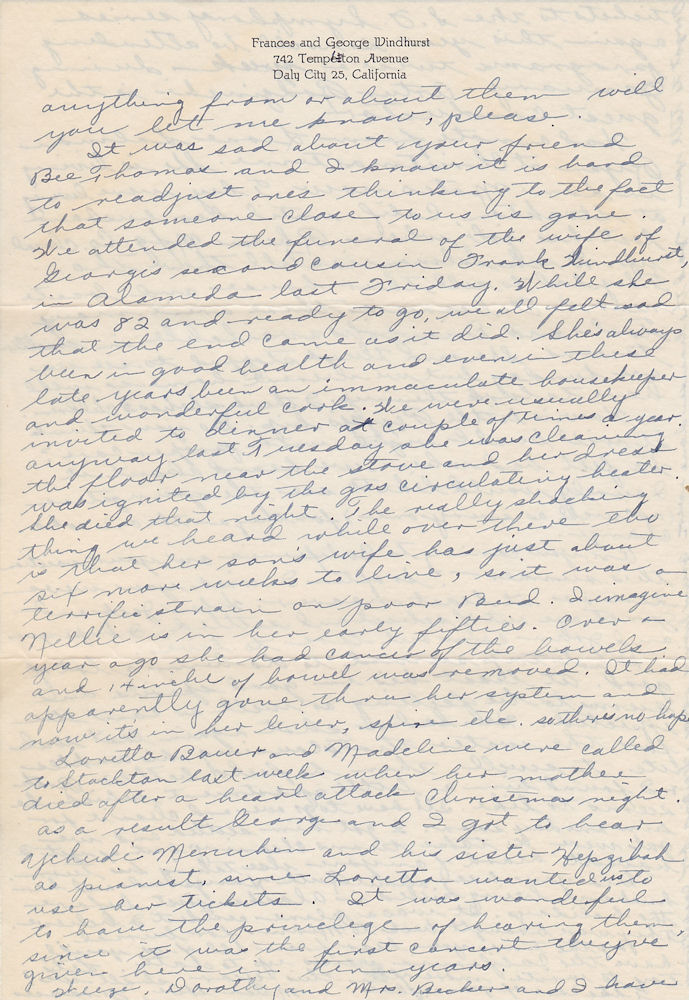 Frances and George Windhurst
742 Templeton Avenue
Daly City 25, California
anything from or about them will
you let me know, please.
It was sad about your friend
Bee Thomas and I know it is hard
to readjust ones thinking to the fact
that someone close to us is gone.
We attended the funeral of the wife of
George's second cousin Frank Windhurst,
in Alameda last Friday. While she
was 82 and ready to go, we all felt sad
that the end came as it did. She's always
been in good health and even in these
late years been an immaculate housekeeper
and wonderful cook. We were usually
invited to dinner a couple of times a year.
anyway last Tuesday she was cleaning
the floor near the stove and her dress
was ignited by the gas circulating heater.
She died that night. The really shocking
thing we heard while over there tho
is that her son's wife has just about
six more weeks to live, so it was a
terrific strain on poor Bud. I imagine
Nellie is in her early fifties. Over a
year ago she had cancer of the bowels
and 14 inche of bowel was removed. It had
apparently gone thru her system and
now its in her liver, spine etc. so there's no hope
Loretta Bauer and Madeline were called
to Stockton last week when her mother
died after a heart attack Christmas night.
as a result George and I got to hear
Yehudi Menuhin and his sister Hepzibah
as pianist, since Loretta wanted us to
use her tickets. It was wonderful
to have the privelege of hearing them,
since it was the first concert they've
given here in ten years.
Dorothy and Mrs. Becker and I have